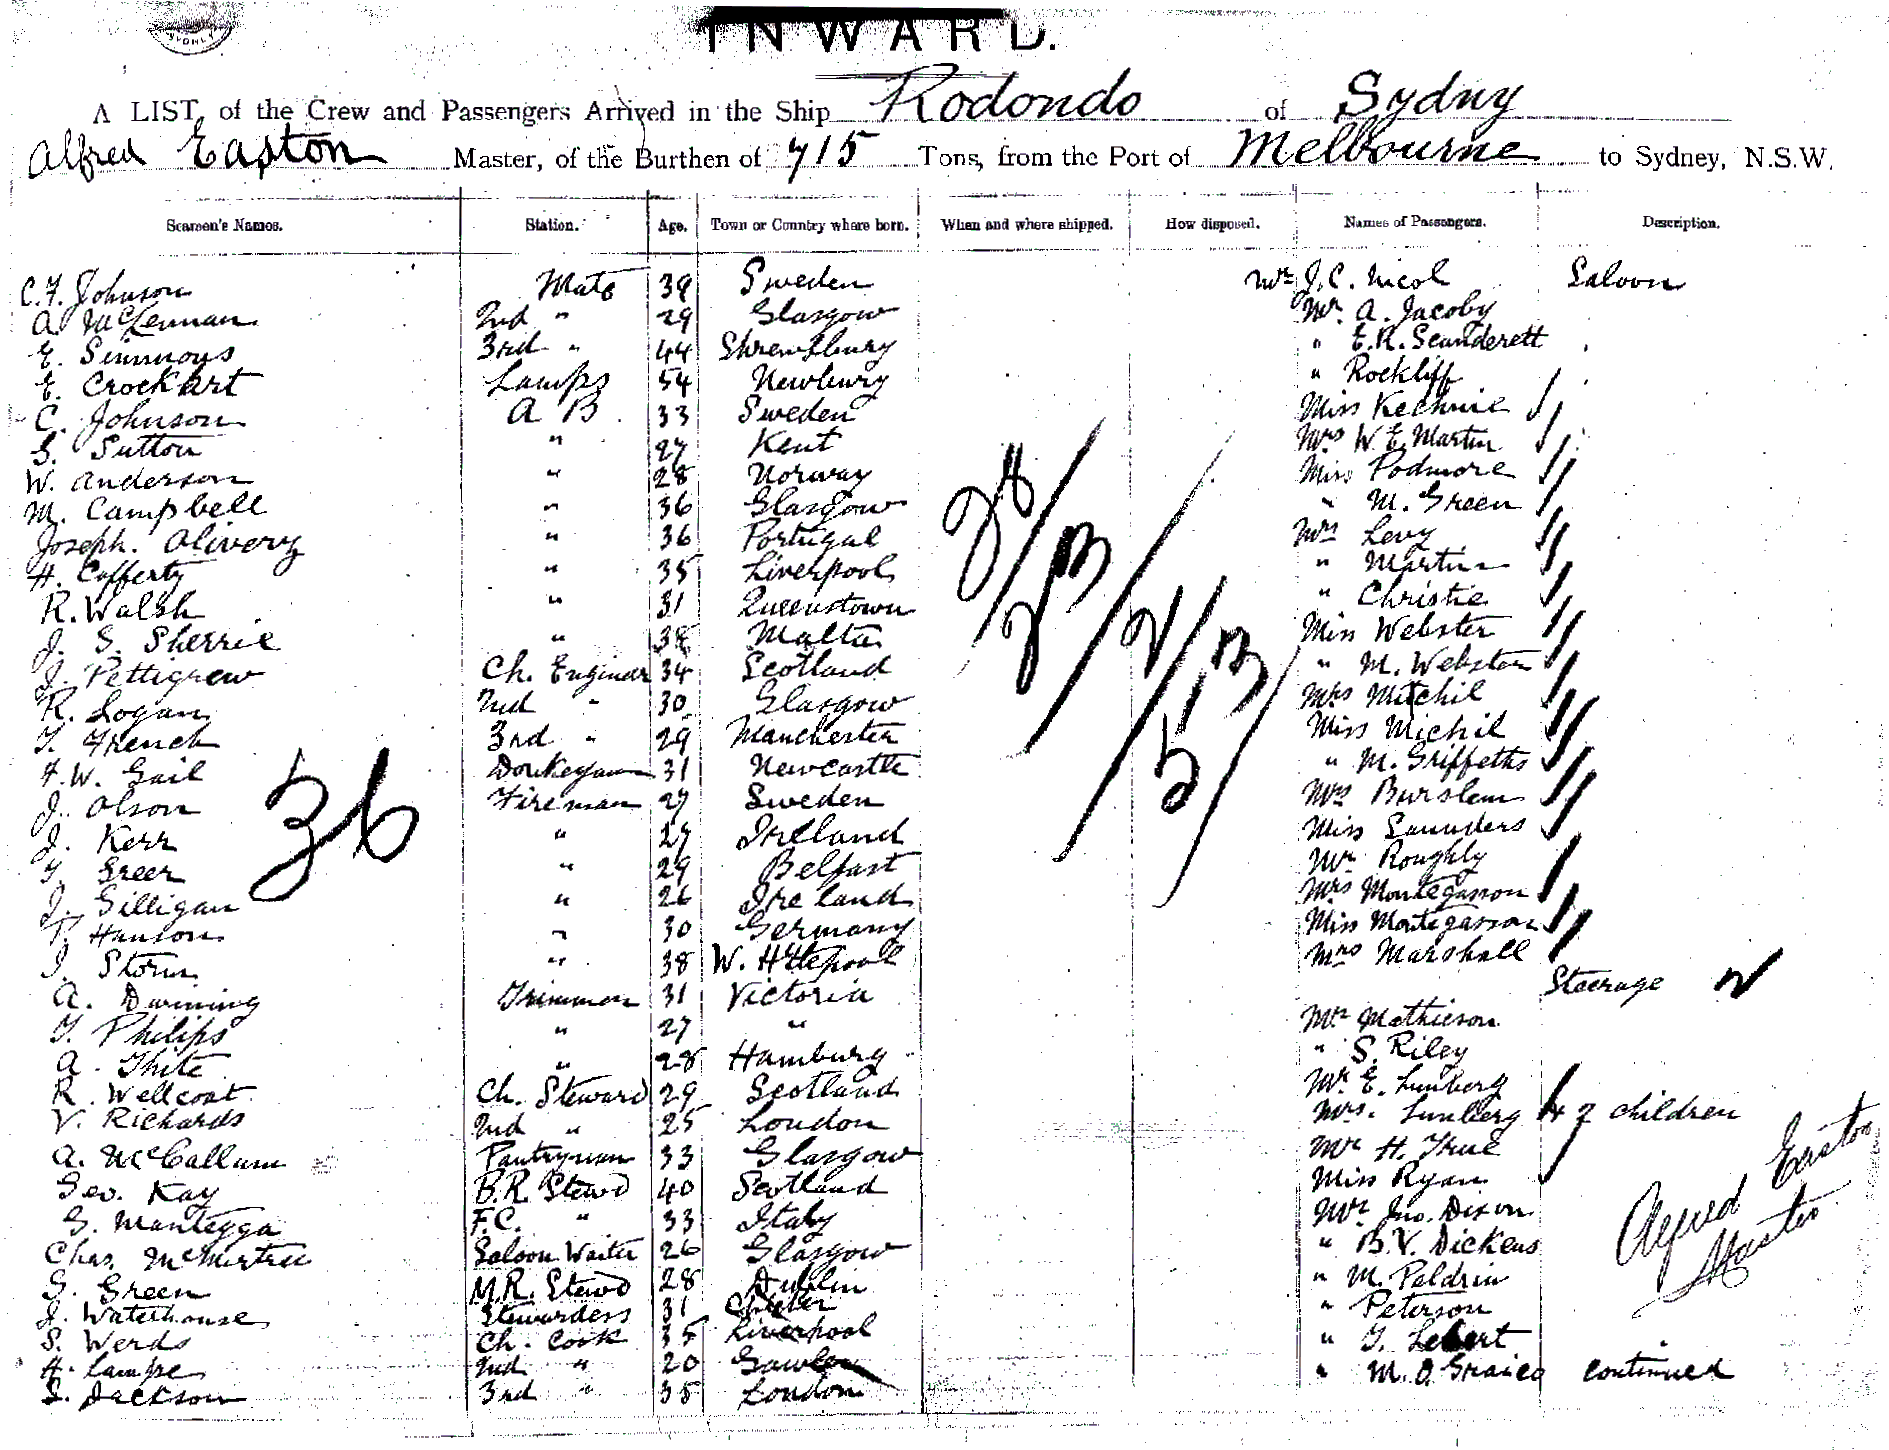 SYDNEY
INWARD.
A LIST of the Crew and Passengers Arrived in the Ship Rodondo of Sydny
Alfred Easton Master, of the Burthen of 715 Tons, from the Port of Melbourne to Sydney, N.S.W.
Seamen's Names. Station. Age. Town or Country where born. When and where shipped. How disposed. Names of Passengers. Description.
C. F. Johnson Mate 39 Sweden Mr J. C. Nicol Saloon
A McLennan 2nd " 29 Glasgow Mr. A. Jacoby
E. Simmons 3rd " 44 Shrewsbury " E. R. Scunderett
E. Crockart Lamps 54 Newbury " Rockliff
C. Johnson A B 33 Sweden Miss Kechnie
S. Sutton " 27 Kent Mrs W. E. Martin
W. Anderson " 28 Norway Miss Podmore
M. Campbell " 36 Glasgow " M. Green
Joseph. Olivery " 36 Portugal Mrs Levy
H. Cafferty " 35 Liverpool " Martin
R. Walsh " 31 Queenstown " Christie
J. S. Sherrie " 38 Malta Miss Webster
J. Pettigrew Ch. Engineer 34 Scotland " M. Webster
R. Logan 2nd " 30 Glasgow Mrs Mitchil
T. French 3rd " 29 Manchester Miss Michil
F. W. Gail Donkeyman 31 Newcastle " M. Griffeths
J. Olson Fireman 27 Sweden Mrs Burslem
J. Kerr " 27 Ireland Miss Saunders
T. Greer " 29 Belfast Mr Roughly
J. Gilligan " 26 Ireland Mrs Montegasson
P. Hanson " 30 Germany Miss Montegasson
J. Storm " 38 W. Htlepool Mrs Marshall
Steerage
A. Dunning Trimmer 31 Victoria
T. Philips " 27 " Mr Mathieson
A. Thite " 28 Hamburg " S. Riley
R. Wellcoat Ch. Steward 29 Scotland Mr E. Lunberg
V. Richards 2nd " 25 London Mrs. Lunberg + 2 children
A. McCallum Pantryman 33 Glasgow Mr H. True
Geo. Kay B.R. Stewd 40 Scotland Miss Ryan
G. Mantegga F.C. " 33 Italy Mr Jno. Dixon
Chas. McMurtrie Saloon Waiter 26 Glasgow " B. V. Dickens
G. Green M.R. Stewd 28 Dublin " M. Peldrin
J. Waterhouse Stewardess 31 Chester " Peterson
S. Werds Ch. Cook 35 Liverpool " T. Lebert
H. Lampe 2nd " 20 Gawler " M. O. Graico continued
S. Jackson 3rd " 35 London
36
28/2/13
2/5/13
Alfred Easton
Master